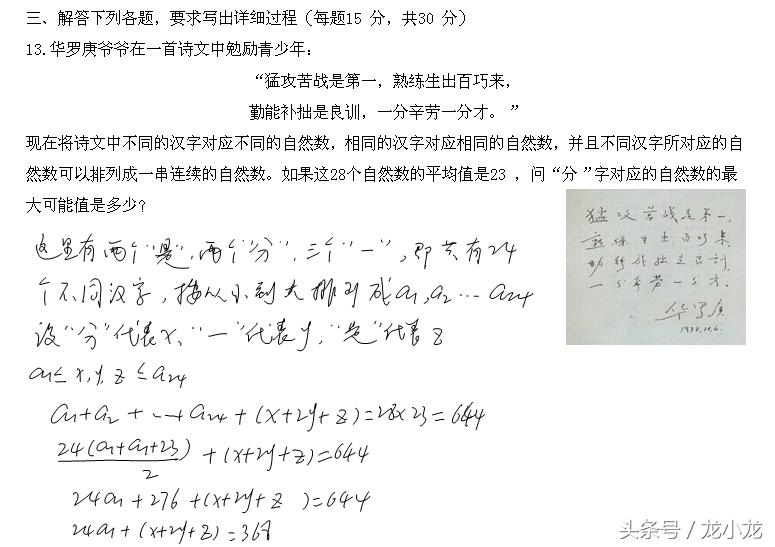 三、解答下列各题，要求写出详细过程（每题15 分，共30 分）
13.华罗庚爷爷在一首诗文中勉励青少年：
“猛攻苦战是第一，熟练生出百巧来，
勤能补拙是良训，一分辛劳一分才。 ”
现在将诗文中不同的汉字对应不同的自然数，相同的汉字对应相同的自然数，并且不同汉字所对应的自
然数可以排列成一串连续的自然数。如果这28个自然数的平均值是23 ，问“分 ”字对应的自然数的最
大可能值是多少？
猛攻苦战是第一,
熟练生出百巧来
勤能补拙是良训
一分辛劳一分才.
华罗庚
1980.10.6.
这里有两个“是”,两个“分”,三个“一”,即共有24
个不同汉字,按从小到大排列成a1,a2 … a24
设“分”代表x、“一”代表y,“是”代表z
a1≤ x,y,z ≤a24
a1+a2 + … + a24 + (x+2y+z)=28×23=644
24(a1+a1+23)/2 + (x+2y+z)=644
24a1+276 +(x+2y+z )=644
24a1+(x+2y+z)=368
头条号／龙小龙